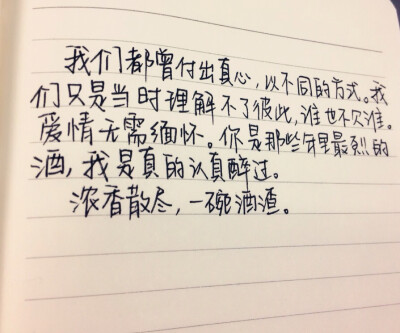 我们都曾付出真心，以不同的方式。我
们只是当时理解不了彼此，谁也不欠谁。
爱情无需缅怀。你是那些年里最烈的
酒，我是真的认真醉过。
浓香散尽，一碗酒渣。